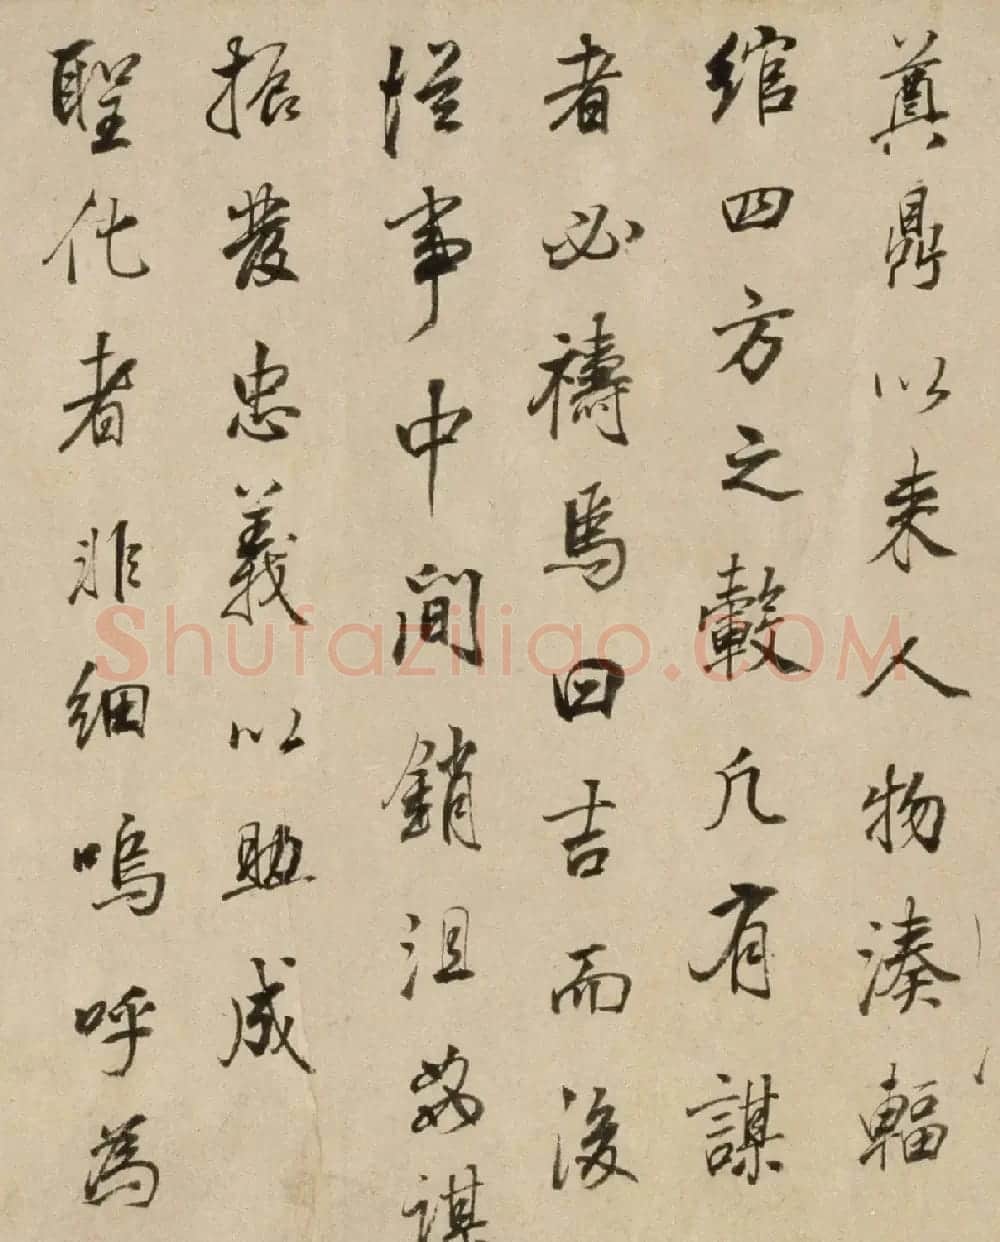 奠鼎以来人物湊輻
綰四方之轂凡有謀
者必禱焉曰吉而後
從事中間銷沮姦謀
振發忠義以助成
聖化者非細嗚呼為
Shufaziliao.COM